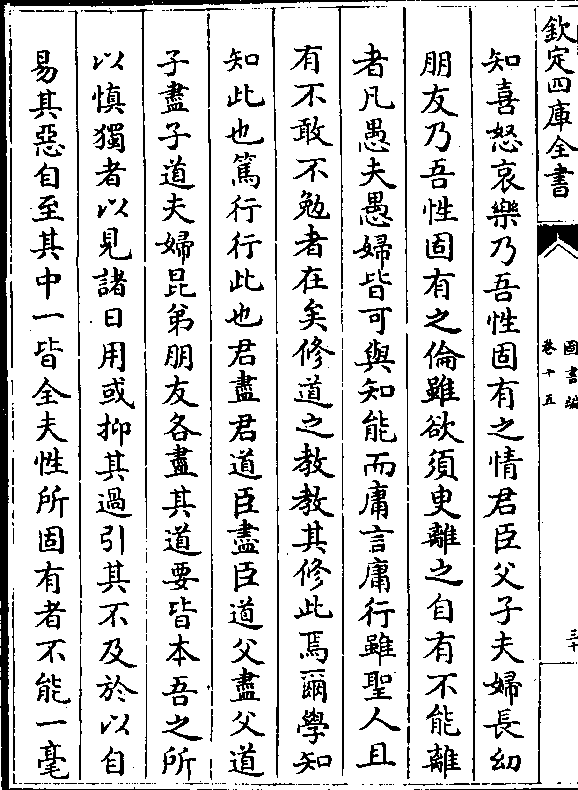 欽定四庫全書
圖書編
卷十五
三十
知喜怒哀樂乃吾性固有之情君臣父子夫婦長幼
朋友乃吾性固有之倫雖欲須臾離之自有不能離
者凡愚夫愚婦皆可與知能而庸言庸行雖聖人且
有不敢不勉者在矣修道之教教其修此焉爾學知
知此也篤行行此也君盡君道臣盡臣道父盡父道
子盡子道夫婦昆弟朋友各盡其道要皆本吾之所
以慎獨者以見諸日用或抑其過引其不及於以自
易其惡自至其中一皆全夫性所固有者不能一毫